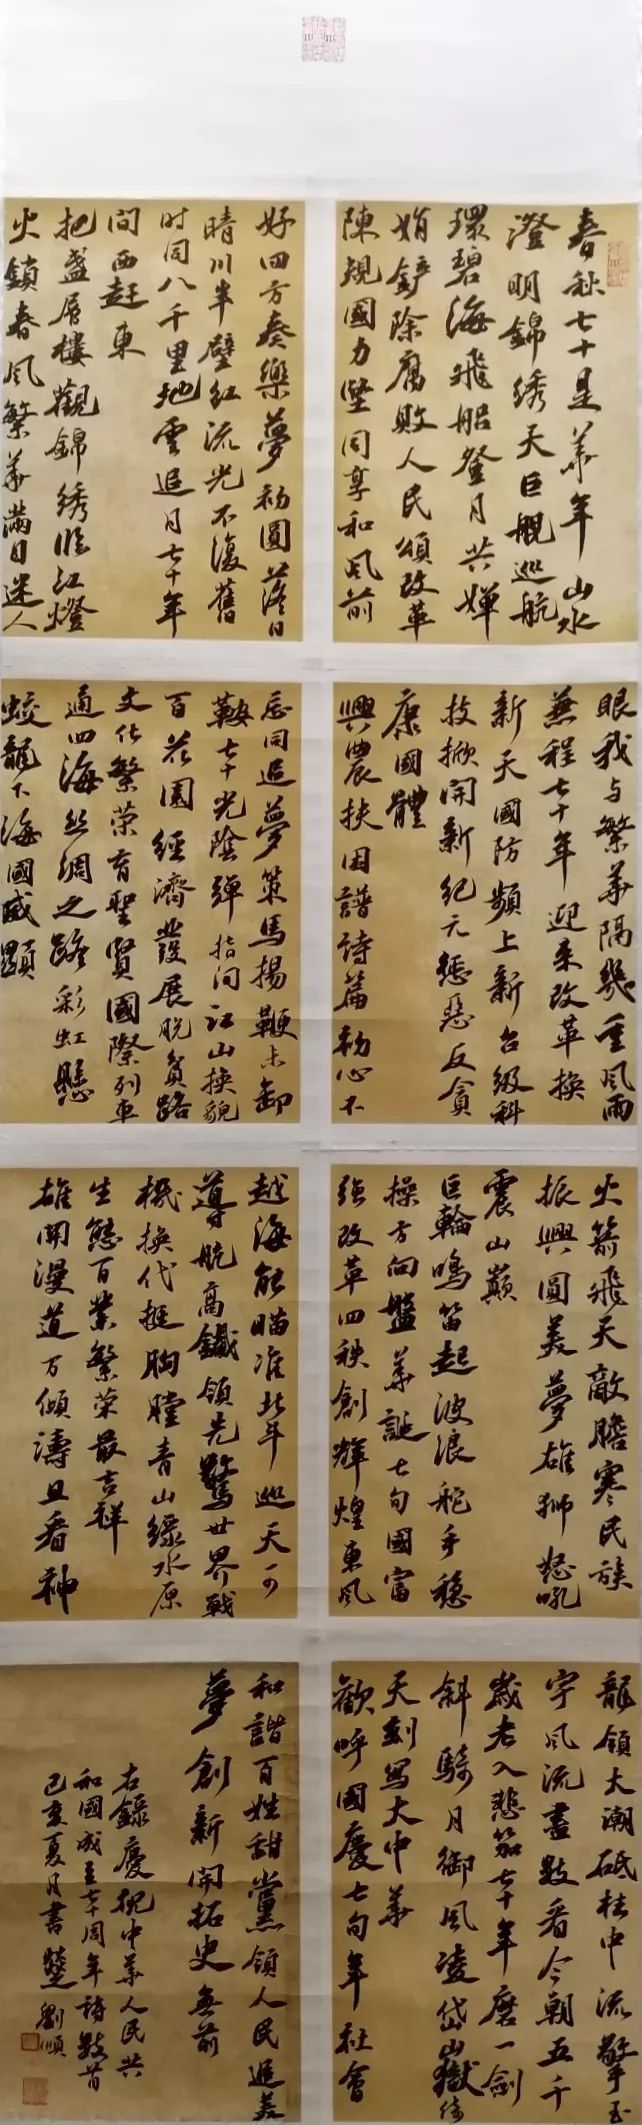 春秋七十是華年山水
澄明錦綉天巨艦巡航
環碧海飛船登月共嬋
娟鏟除腐敗人民頌改革
陳規國力堅同享和風前
好四方奏樂夢初圓落日
晴川半壁紅流光不復舊
時同八千里地雲追月七十年
間西赶東
把盞層樓觀錦綉臨江燈
火鎖春風繁華滿目迷人
眼我与繁華隔幾重風雨
兼程七十年迎来改革換
新天國防頻上新台級科
技掀開新紀元懲惡反貪
康國體
興農扶困譜詩篇初心不
忘同追夢策馬揚鞭未卸
鞍七十光陰彈指间江山換貌
百花園經濟發展脱貧路
文化繁荣育聖賢國際列車
通四海丝綢之路彩虹懸
蛟龍下海國威顯
火箭飛天敵膽寒民族
振興圓美夢雄狮怒吼
震山巔
巨輪鳴笛起波浪舵手穩
操方向盤華誕七旬國富
强改革四秩創輝煌東風
越海能瞄准北斗巡天可
導航高鐵領先驚世界戰
機換代挺胸膛青山緑水原
生態百業繁荣最吉祥
雄開漫道万傾濤且看神
龍領大潮砥柱中流擎玉
宇風流盡數看今朝五千
歲老入悲笳七十年磨一劍
斜騎月御風凌岱山嶽倚
天刻写大中华
歡呼國慶七旬年社會
和諧百姓甜黨領人民追美
夢創新開拓史無前
右錄慶祝中華人民共
和國成立七十周年詩數首
己亥夏月書 劉順